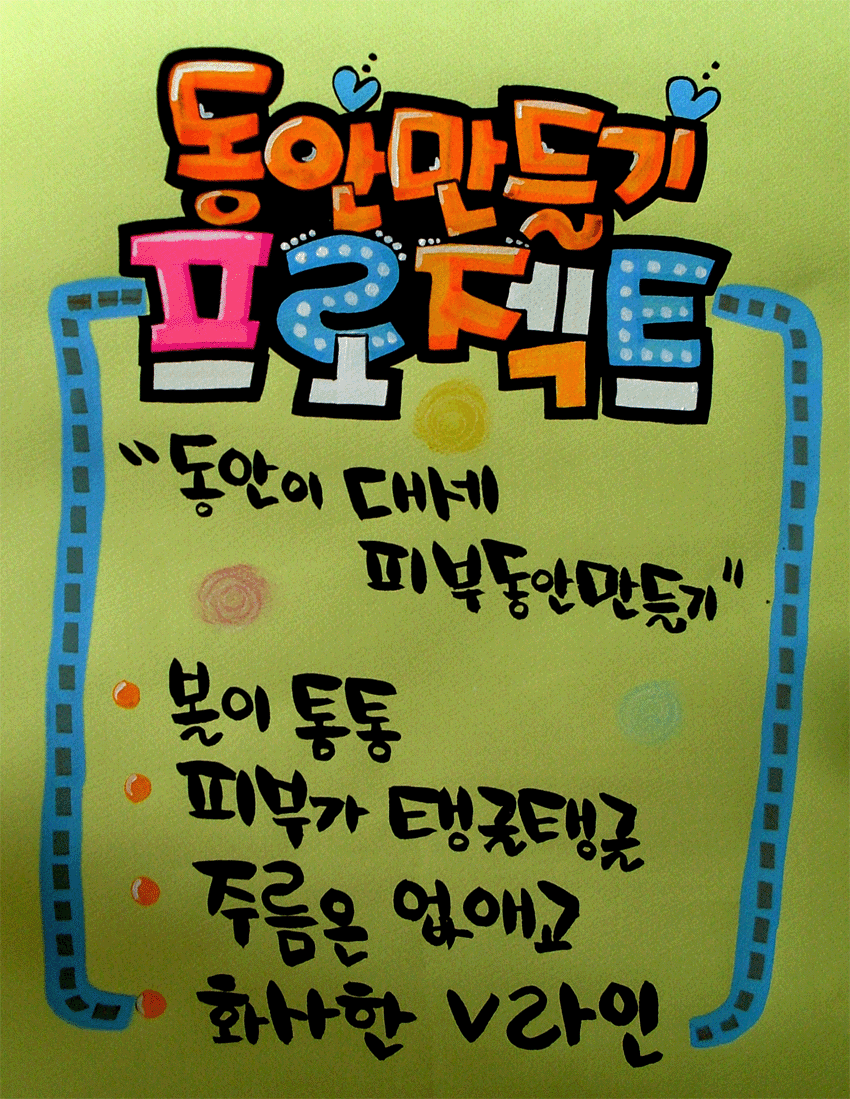 동안만들기
프로젝트
"동안이 대세
피부동안만들기"
볼이 통통
피부가 탱글탱글
주름은 없애고
화사한 V라인